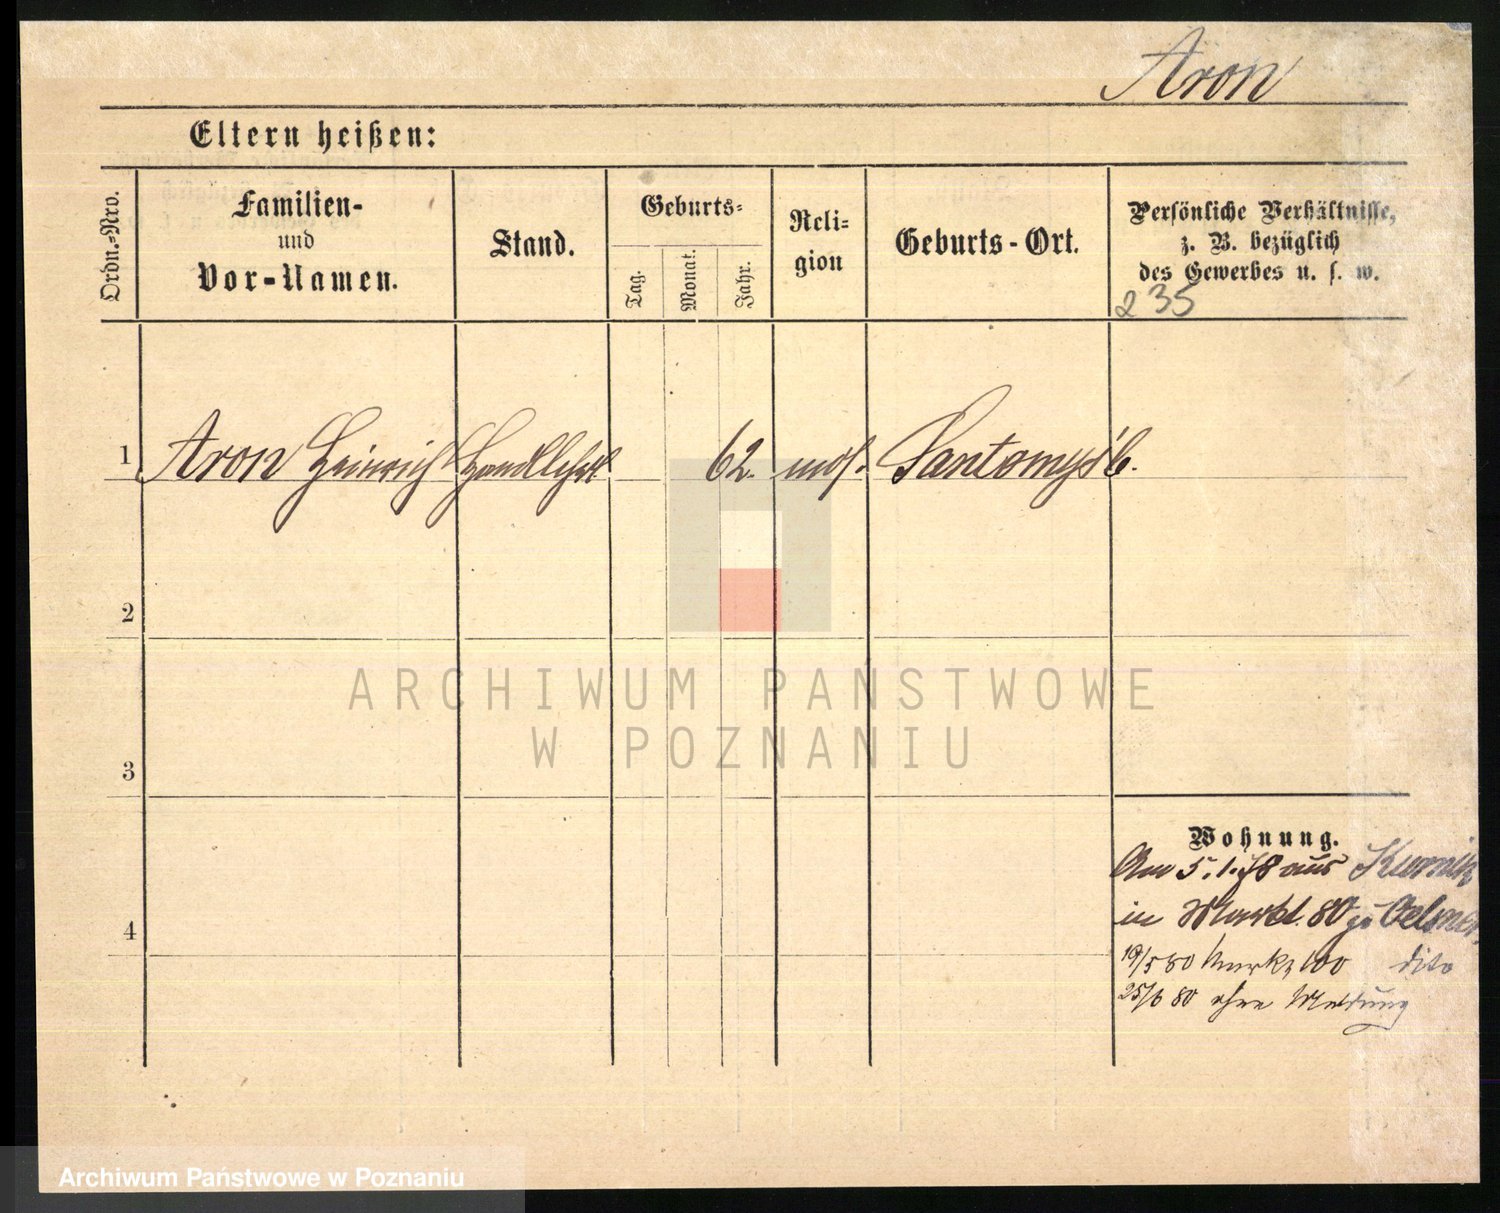 Aron
Eltern heißen:
Ordn.-Nro.
Familien-
und
Vor-Namen.
Stand.
Geburts-
Tag.
Monat.
Jahr.
Reli-
gion
Geburts-Ort.
Persönliche Verhältnisse,
z. B. bezüglich
des Gewerbes u. s. w.
235
1 Aron Heinrich Handllehrl. 62. mos. Santomyśl.
2
3
4
Wohnung.
Am 5.1.78 aus Kurnik
in Markt 80 zu Oelsner
19/5 80 Markt 100 dito
25/6 80 ohne Meldung
ARCHIWUM PAŃSTWOWE
W POZNANIU
Archiwum Państwowe w Poznaniu